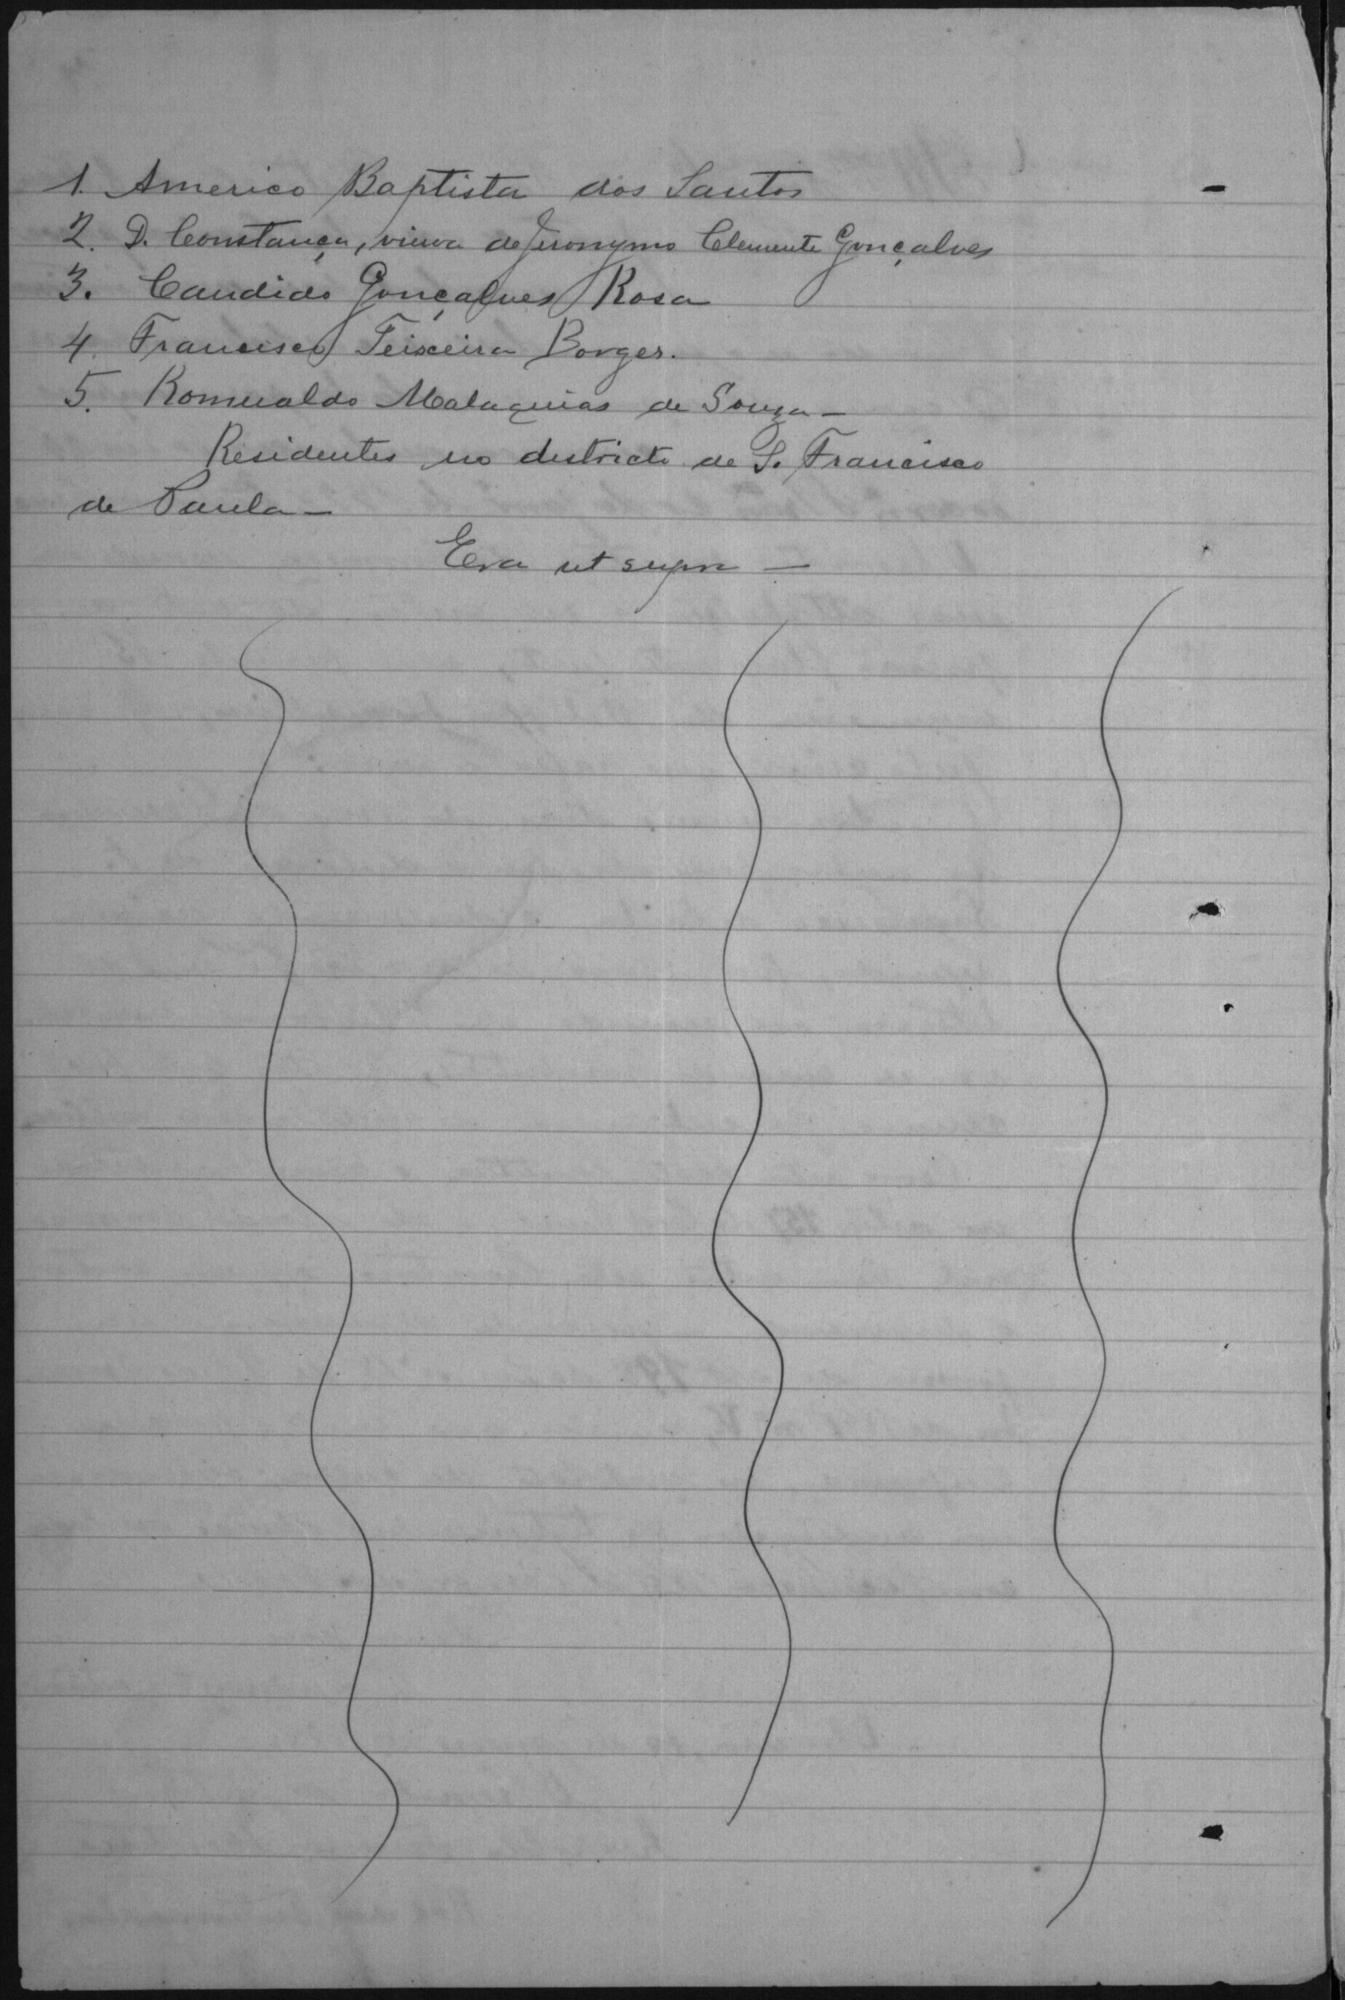 1. Americo Baptista dos Santos
2. D. Constança, viuva de Jeronymo Clemente Gonçalves
3. Candido Gonçalves Rosa
4. Francisco Teixeira Borges.
5. Romualdo Malaquias de Souza -
Residentes no districto de S. Francisco
de Paula -
Era ut supra -